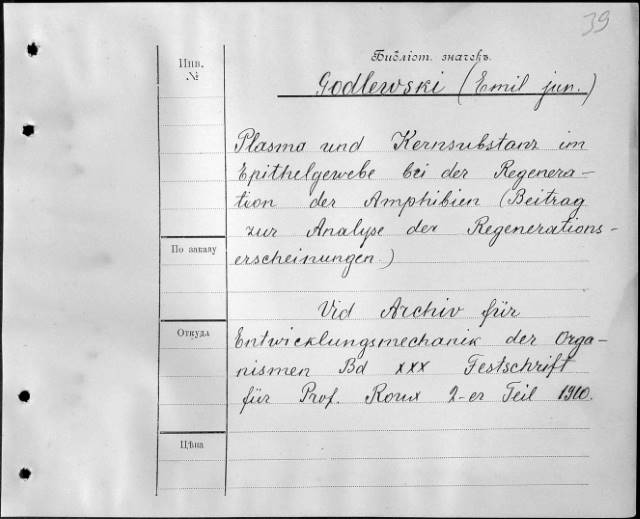 39
Библіот. значекъ.
Инв.
№
Godlewski (Emil jun.)
Plasma und Kernsubstanz im
Epithelgewebe bei der Regenera-
tion der Amphibien (Beitrag
zur Analyse der Regenerations-
erscheinungen.)
По заказу
Vid Archiv für
Откуда
Entwicklungsmechanik der Orga-
nismen Bd xxx Festschrift
für Prof. Roux 2-er Teil 1910.
Цѣна